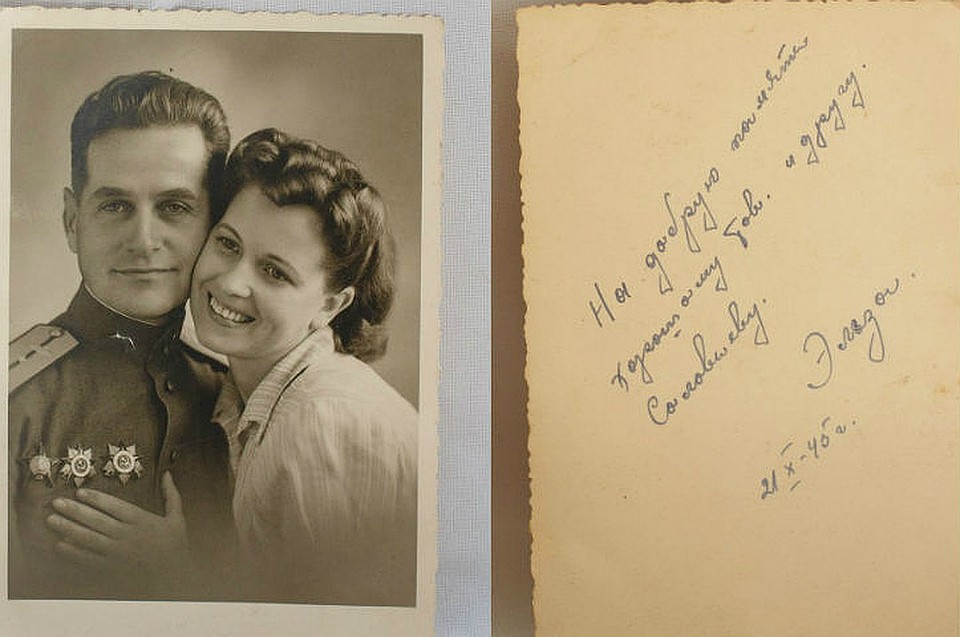 На добрую память
хорошому тов. и другу.
Соловьеву.
Эльза.
21 X - 45 г.